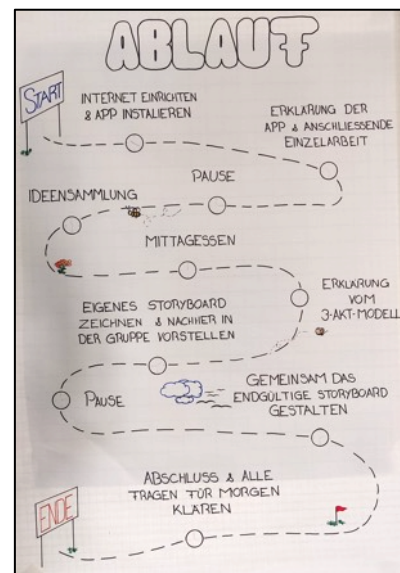 ABLAUF
START
INTERNET EINRICHTEN
& APP INSTALIEREN
ERKLÄRUNG DER
APP & ANSCHLIESSENDE
EINZELARBEIT
PAUSE
IDEENSAMMLUNG
MITTAGESSEN
ERKLÄRUNG
VOM
3-AKT-MODELL
EIGENES STORYBOARD
ZEICHNEN & NACHHER IN
DER GRUPPE VORSTELLEN
GEMEINSAM DAS
ENDGÜLTIGE STORYBOARD
GESTALTEN
PAUSE
ABSCHLUSS & ALLE
FRAGEN FÜR MORGEN
KLÄREN
ENDE